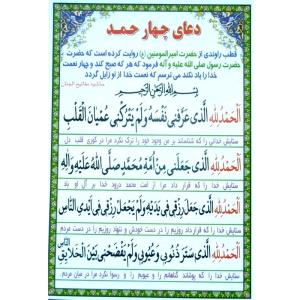 دعای چهار حمد
قطب راوندی از حضرت امیرالمومنین (ع) روایت کرده است که حضرت
حضرت رسول صلی الله علیه و آله فرمود که هر که صبح کند و چهار نعمت
خدا را یاد نکند می ترسم که نعمت خدا از او زایل گردد
حاشیه مفاتیح الجنان
بسم الله الرحمن الرحیم
اَلْحَمْدُ لِلّٰهِ الَّذی عَرَّفَنی نَفْسَهُ وَلَمْ یَتْرُکْنی عُمْیَانَ الْقَلْبِ
ستایش خدائی را که شناساند به من وجود خود را و ترک نکرد مرا در کوری قلب دل
اَلْحَمْدُ لِلّٰهِ الَّذی جَعَلَنی مِنْ اُمَّةِ مُحَمَّدٍ صَلَّی اللهُ عَلَیْهِ وَآلِهِ
ستایش خدا را که قرار داد مرا از امت محمد درود خدا بر او و آل او باد
اَلْحَمْدُ لِلّٰهِ الَّذی جَعَلَ رِزْقی فی یَدَیْهِ وَلَمْ یَجْعَلْ رِزْقی فی اَیْدِی النّٰاسِ
ستایش خدا را که قرار داد روزیم را در دست خودش و ننهاد روزیم را در دست مردم
اَلْحَمْدُ لِلّٰهِ الَّذی سَتَرَ ذُنُوبی وَعُیُوبی وَلَمْ یَفْضَحْنی بَیْنَ الْخَلٰایِقِ
ستایش خدا را که پوشاند گناهانم را و عیوبم را و رسوا نکرد مرا در میان مردم